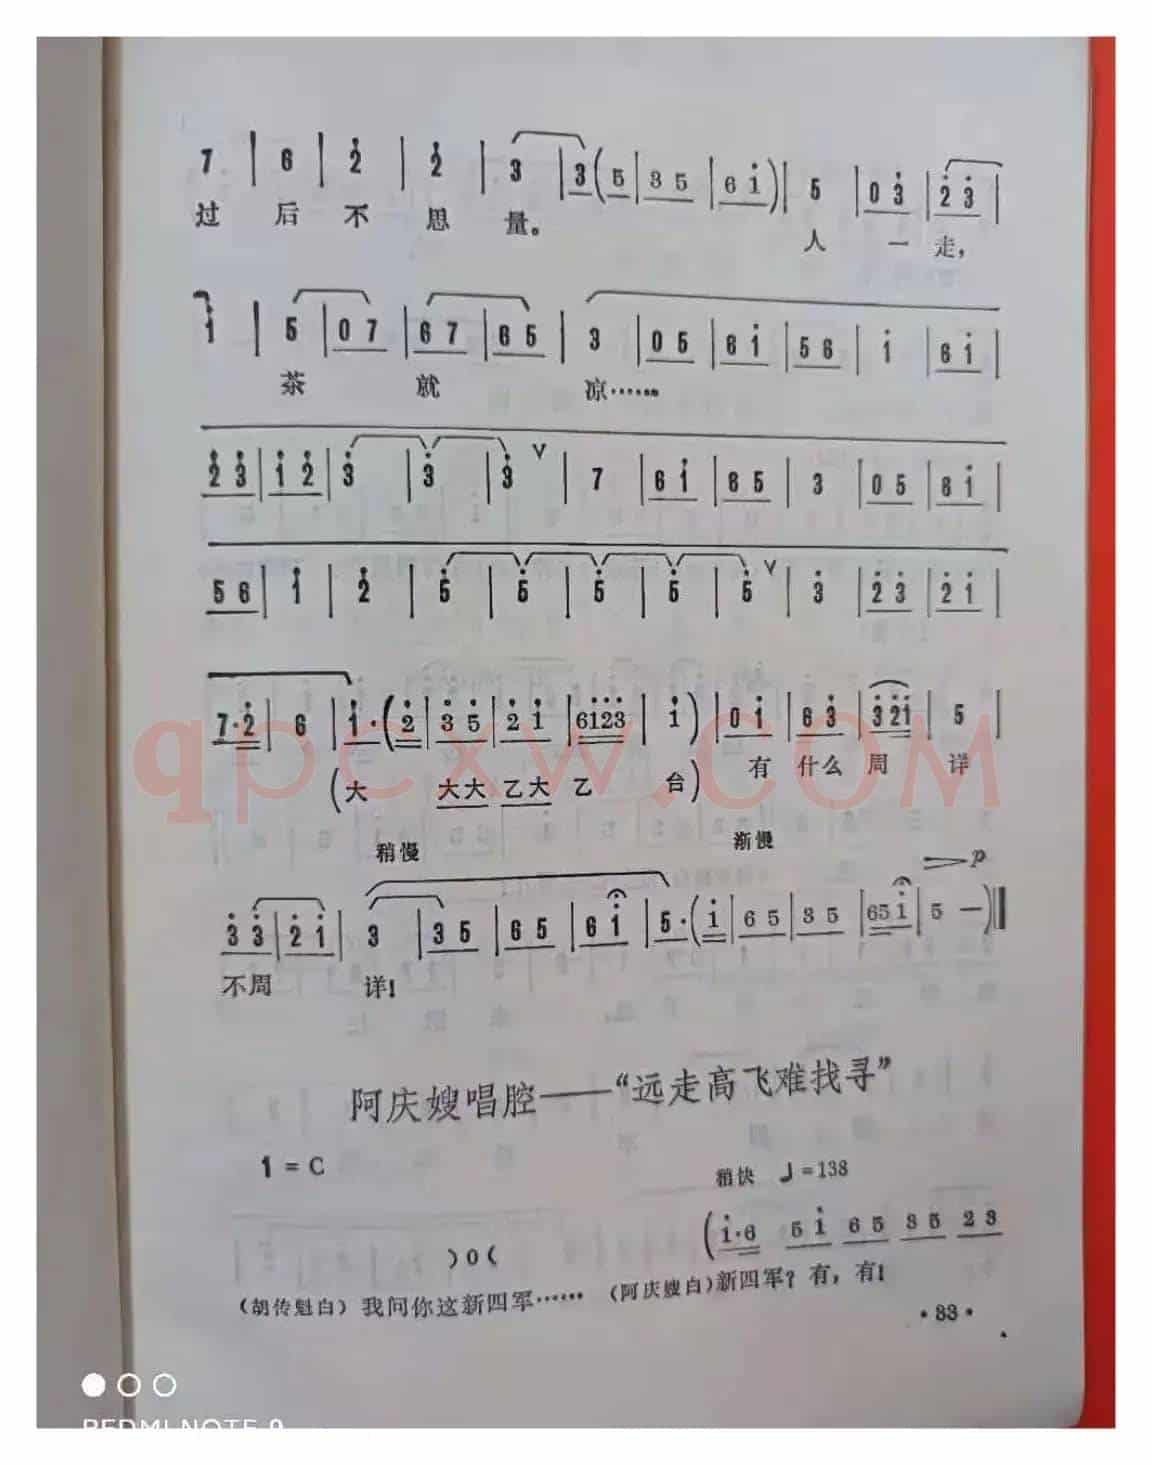 7 | 6 | 2 | 2 | 3 | 3 ( 5 | 3 5 | 6 1 ) | 5 | 0 3 | 2 3 |
过 后 不 思 量。 人 一 走,
1 | 5 | 0 7 | 6 7 | 6 5 | 3 | 0 5 | 6 1 | 5 6 | 1 | 6 1 |
茶 就 凉……
2 3 | 1 2 | 3 | 3 | 3 ∨ | 7 | 6 1 | 6 5 | 3 | 0 5 | 6 1 |
5 6 | 1 | 2 | 5 | 5 | 5 | 5 | 5 ∨ | 3 | 2 3 | 2 1 |
7·2 | 6 | 1·( 2 | 3 5 | 2 1 | 6123 | 1 ) | 0 1 | 6 3 | 3 21 | 5 |
(大 大大 乙大 乙 台) 有 什么 周 详
qpcxw.com
稍慢 渐慢 p
3 3 | 2 1 | 3 | 3 5 | 6 5 | 6 1 | 5·( 1 | 6 5 | 3 5 | 65 1 | 5 — )
不周 详!
阿庆嫂唱腔——“远走高飞难找寻”
1 = C
稍快 ♩=138
)0( (1·6 5 1 6 5 3 5 2 3
(胡传魁白) 我问你这新四军…… (阿庆嫂白)新四军? 有, 有!
·83·
REDMI NOTE 9